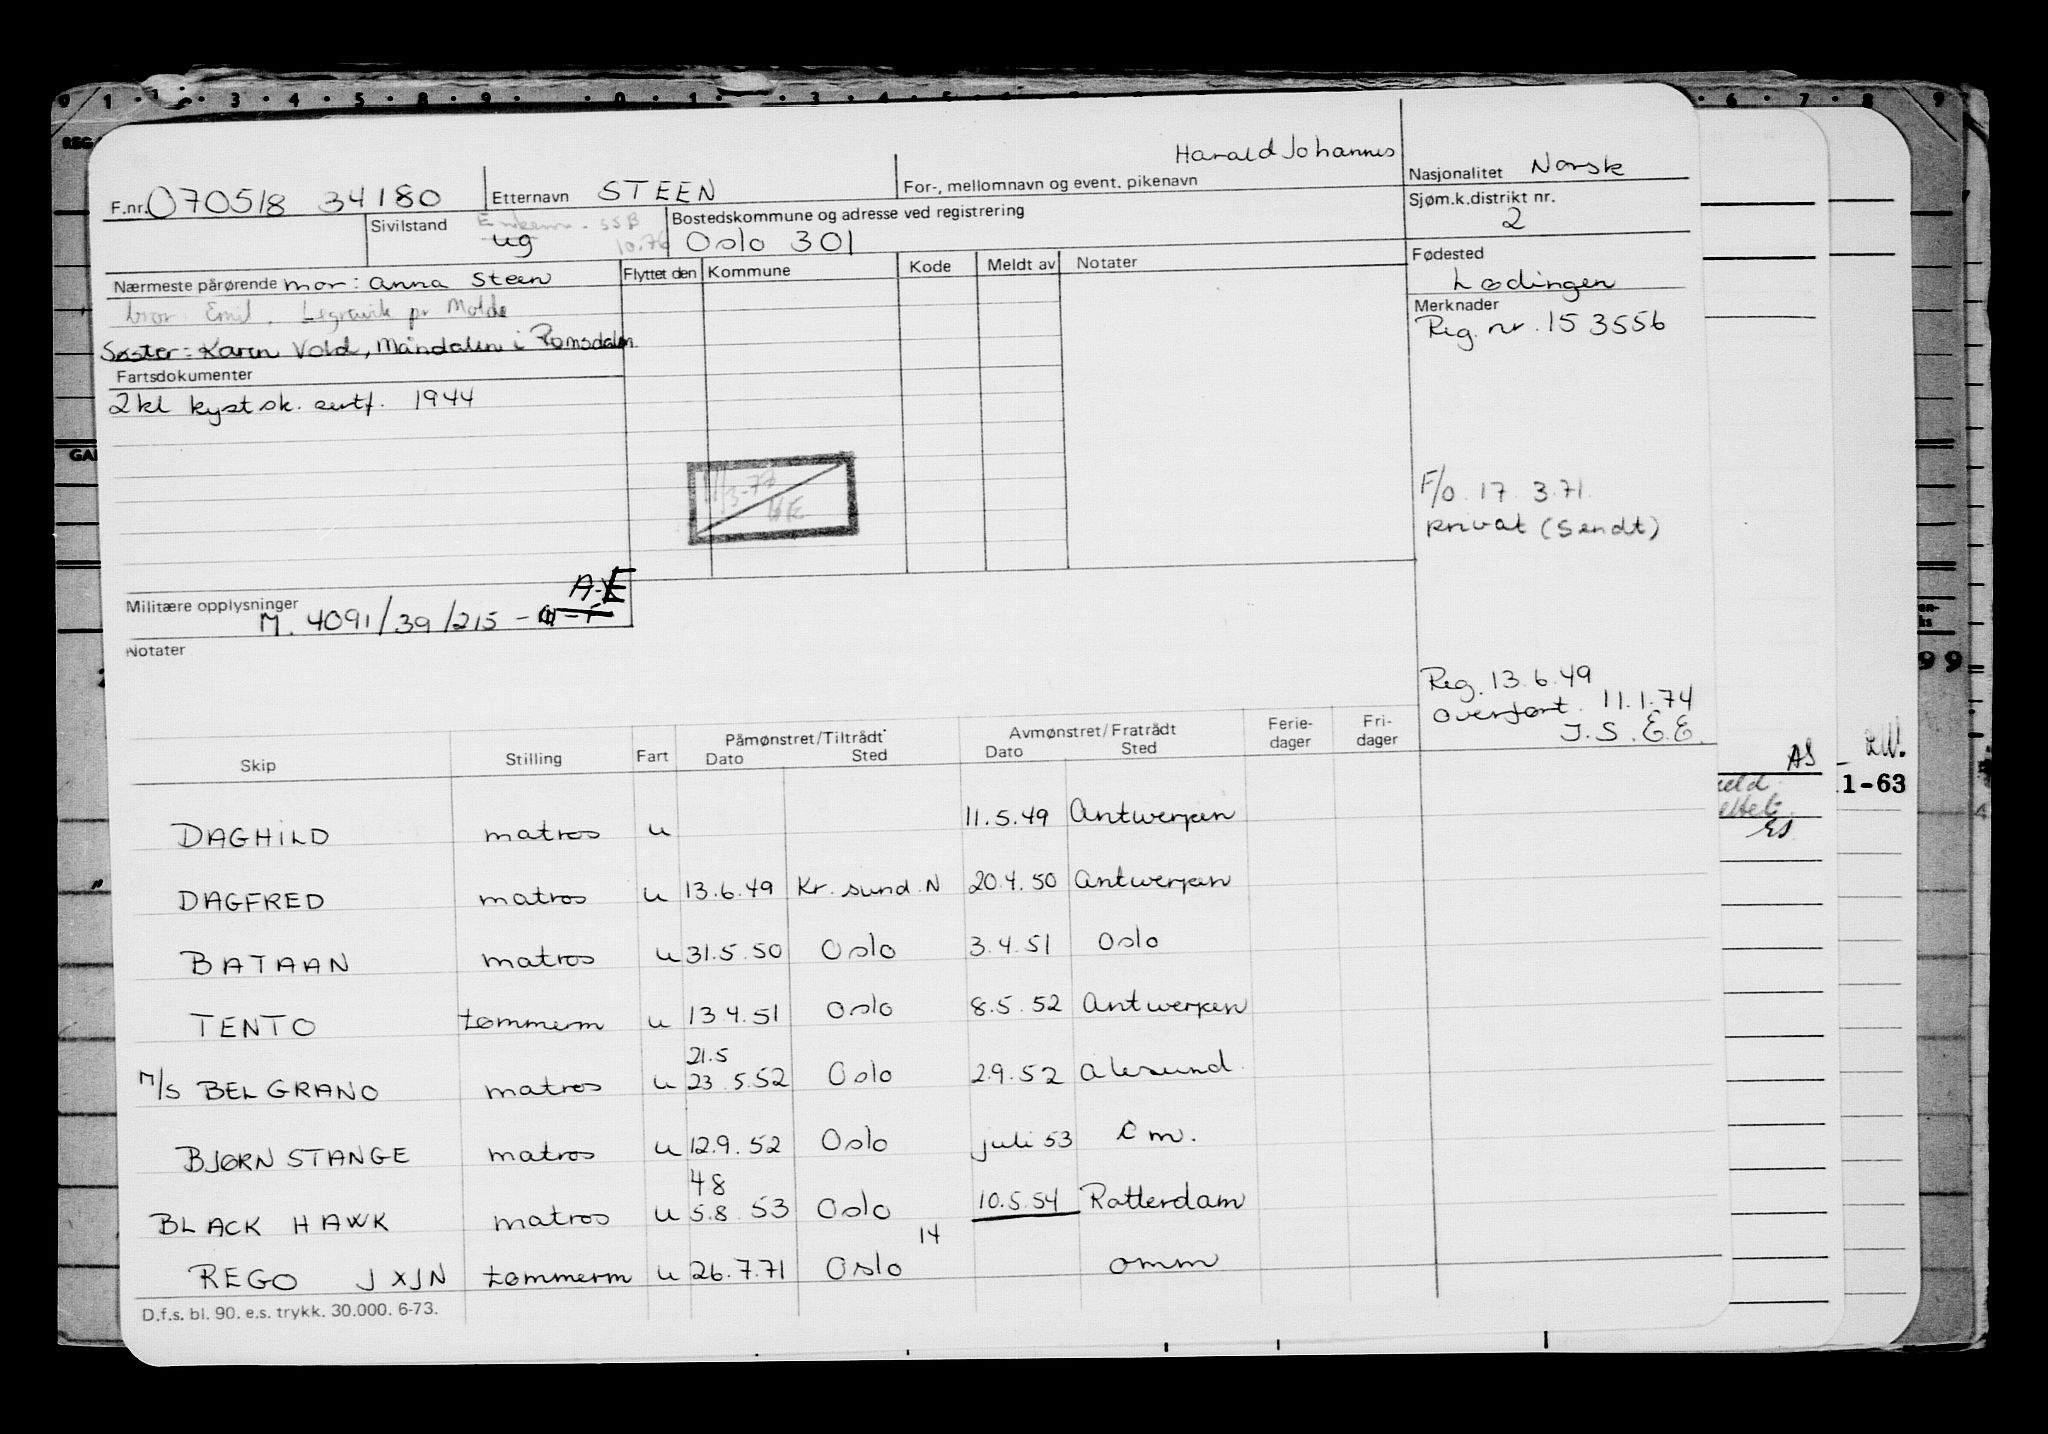 Harald Johannes
F.nr. 070518 34180 Etternavn STEEN For-, mellomnavn og event. pikenavn Nasjonalitet Norsk
Sivilstand ug Bostedskommune og adresse ved registrering Sjøm.k.distrikt nr.
10.76 Oslo 301 2
Nærmeste pårørende mor: Anna Steen Flyttet den Kommune Kode Meldt av Notater Fødested
Lødingen
bror Emil, pr Molde Merknader
Søster: Karen Vold, Måndalen i Romsdalen Reg. nr. 153556
Fartsdokumenter
2kl kystsk. sertf. 1944
11/3-77
F/O. 17. 3.71.
privat (Sendt)
Militære opplysninger M. 4091/39/215 -
Notater
Reg. 13.6.49
overført 11.1.74
J.S. E.E.
Skip Stilling Fart Påmønstret/Tiltrådt Dato Sted Avmønstret/Fratrådt Dato Sted Ferie-dager Fri-dager
DAGHILD matros u 11.5.49 Antwerpen
DAGFRED matros u 13.6.49 Kr.sund N 20.4.50 Antwerpen
BATAAN matros u 31.5.50 Oslo 3.4.51 Oslo
TENTO tømmerm u 13.4.51 Oslo 8.5.52 Antwerpen
21.5
M/S BELGRANO matros u 23.5.52 Oslo 2.9.52 Ålesund
BJØRN STANGE matros u 12.9.52 Oslo juli 53 m.
48
BLACK HAWK matros u 5.8.53 Oslo 10.5.54 Rotterdam
14
REGO JXJN tømmerm u 26.7.71 Oslo omm
D.f.s. bl. 90. e.s. trykk. 30.000. 6-73.
AS
1-63
99